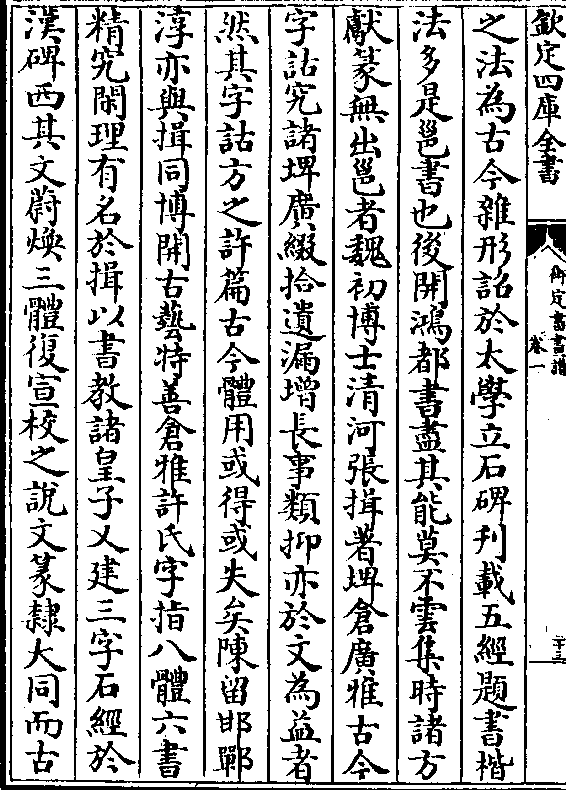 欽定四庫全書
御定書畫譜
卷一
二十三
之法為古今雜形詔於太學立石碑刋載五經題書楷
法多是邕書也後開鴻都書畫其能莫不雲集時諸方
獻篆無出邕者魏初博士清河張揖著埤倉廣雅古今
字詁究諸埤廣綴拾遺漏增長事類抑亦於文為益者
然其字詁方之許篇古今體用或得或失矣陳留邯鄲
淳亦與揖同博開古藝特善倉雅許氏字指八體六書
精究閑理有名於揖以書教諸皇子又建三字石經於
漢碑西其文蔚煥三體復宣校之說文篆隸大同而古